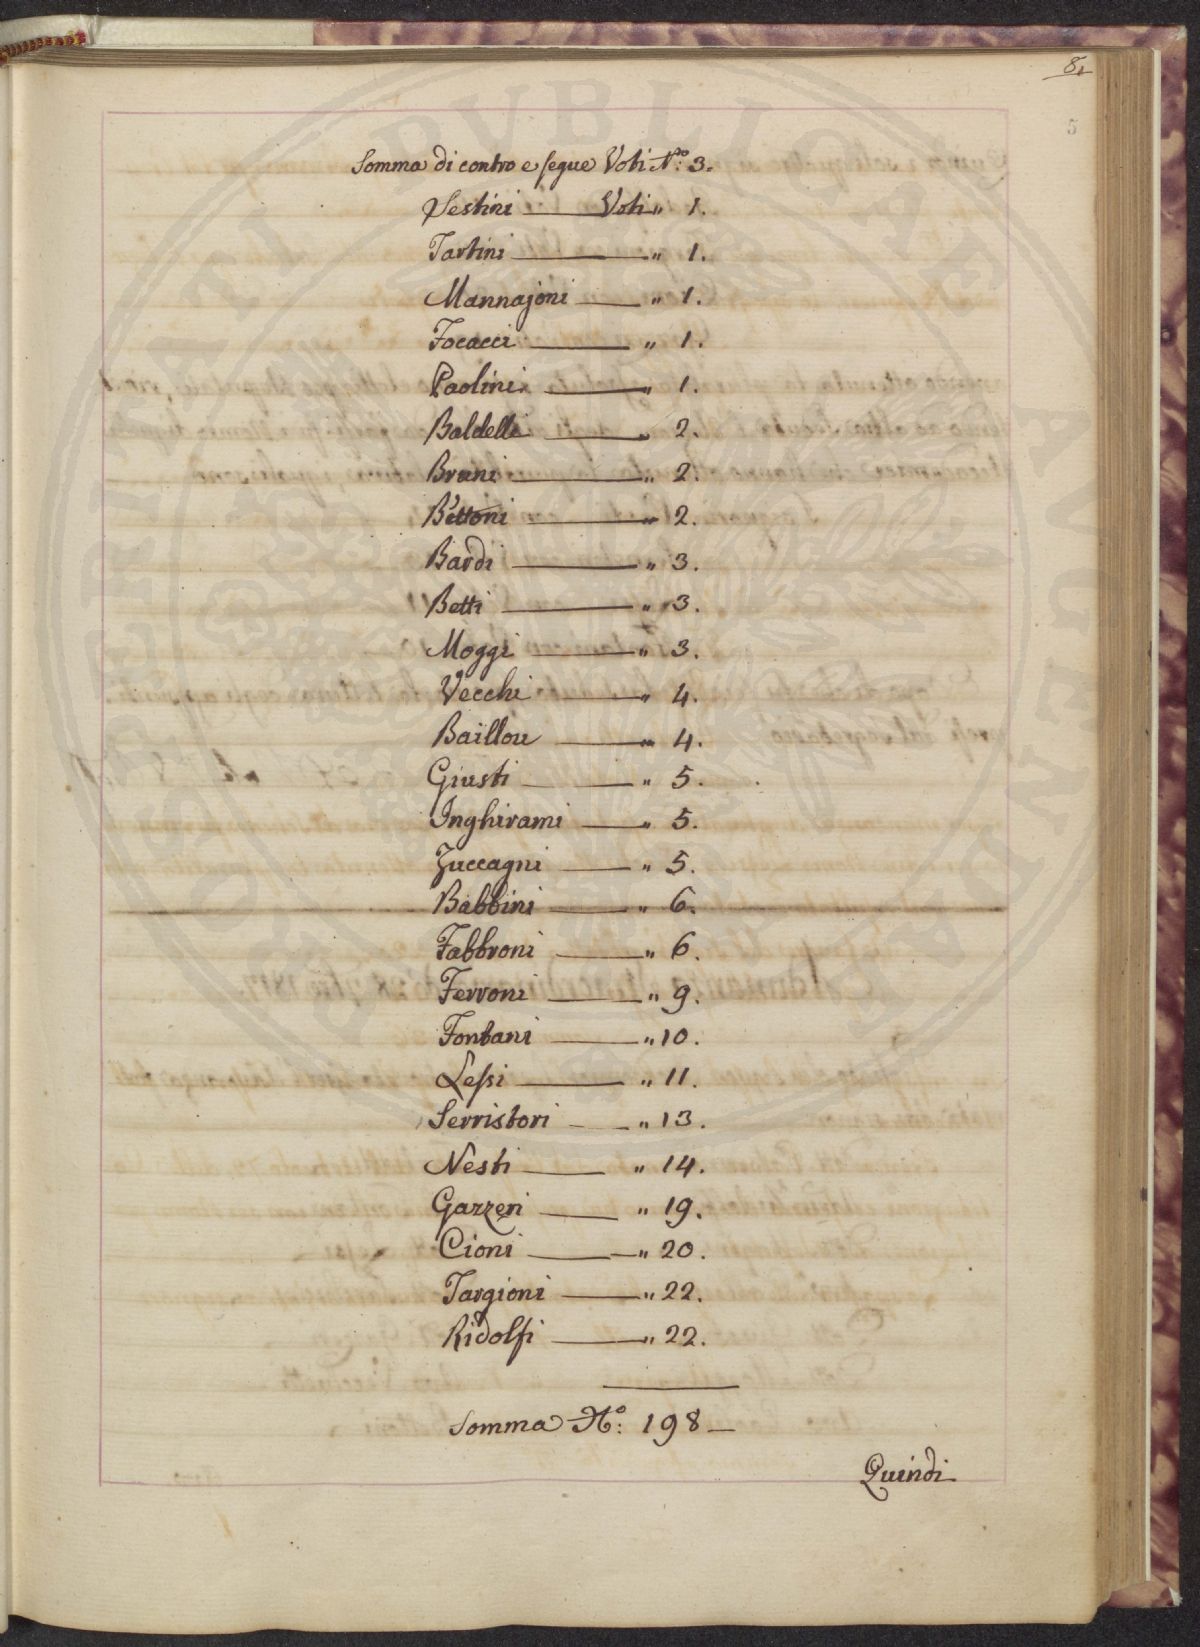 8.
5
Somma di contro e segue Voti N.º 3.
Sestini Voti " 1.
Tartini " 1.
Mannajoni " 1.
Focacci " 1.
Paolini " 1.
Baldelli " 2.
Bruni " 2.
Bettoni " 2.
Bardi " 3.
Betti " 3.
Moggi " 3.
Vecchi " 4.
Baïllou " 4.
Giusti " 5.
Inghirami " 5.
Zuccagni " 5.
Babbini " 6.
Fabbroni " 6.
Ferroni " 9.
Fontani " 10.
Lessi " 11.
Serristori " 13.
Nesti " 14.
Gazzeri " 19.
Cioni " 20.
Targioni " 22.
Ridolfi " 22.
Somma N.º: 198
Quindi
PROSPERITATI PUBLICAE AUGENDAE